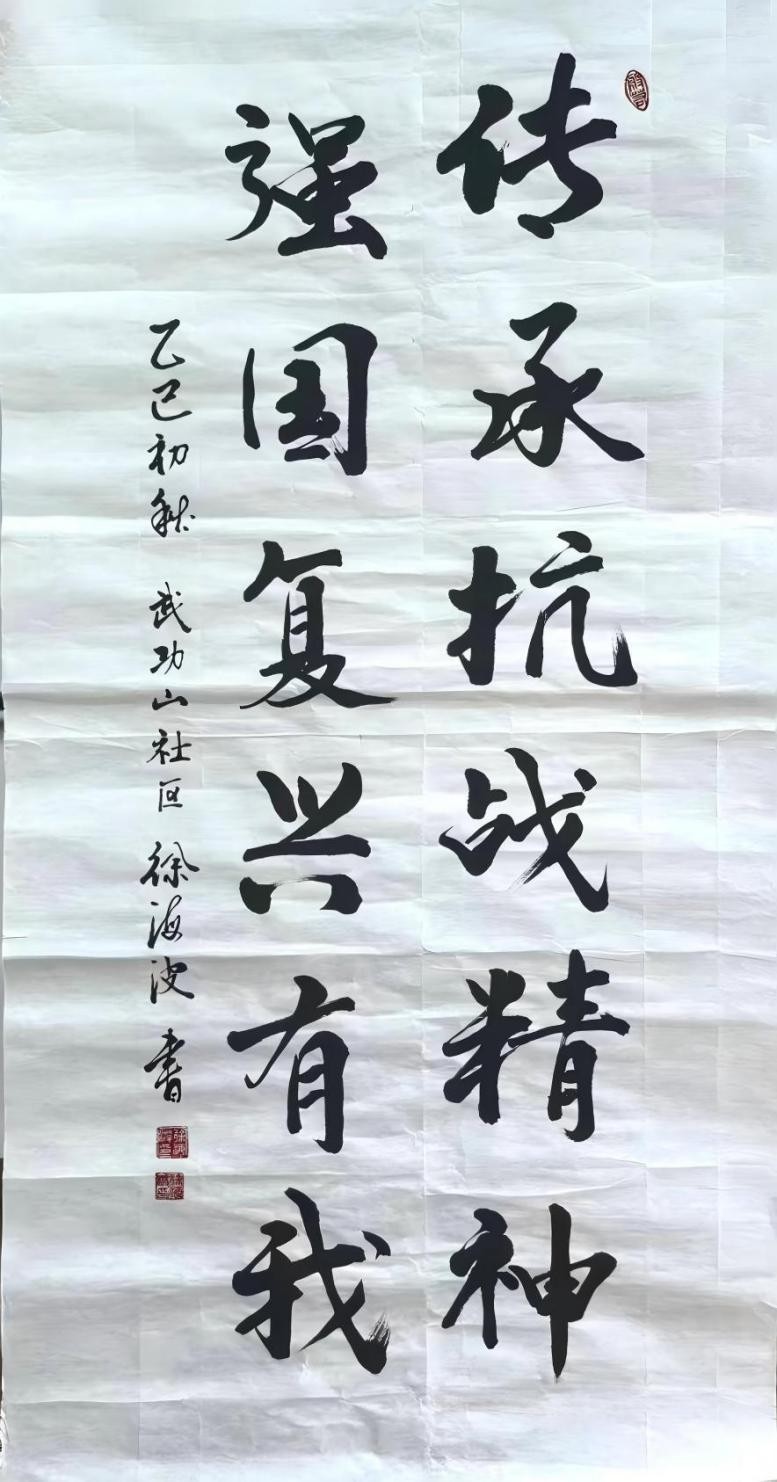 传承抗战精神
强国复兴有我
乙巳初秋 武功山社区 徐海波 书